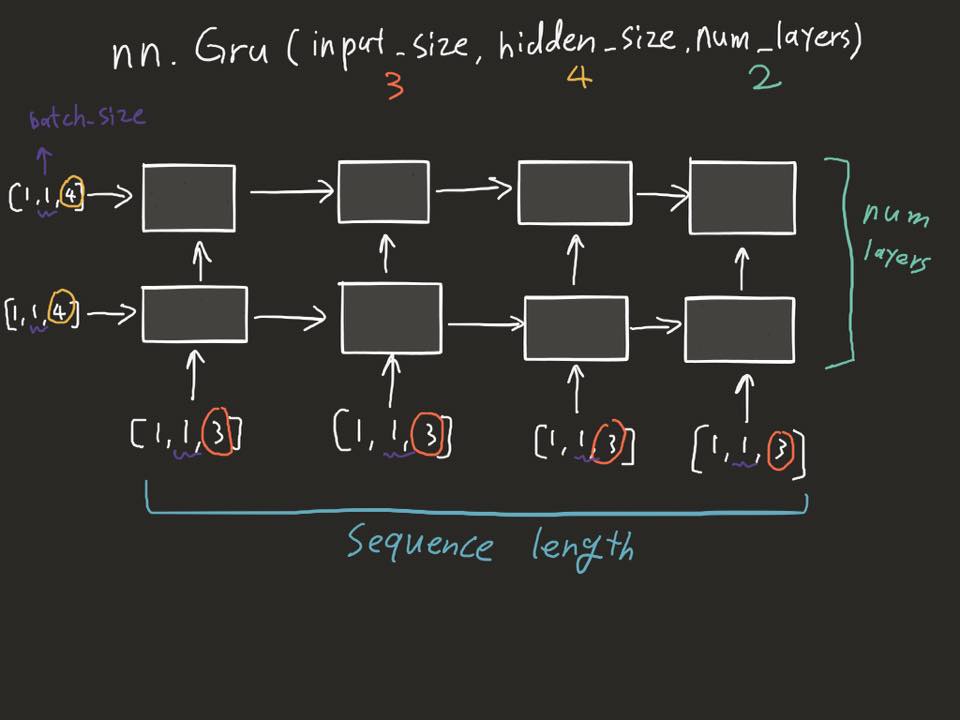 nn. Gru (input_size, hidden_size, num_layers)
3 4 2
batch_size
[1,1,4]
num
layers
[1,1,4]
[1,1,3] [1,1,3] [1,1,3] [1,1,3]
Sequence length